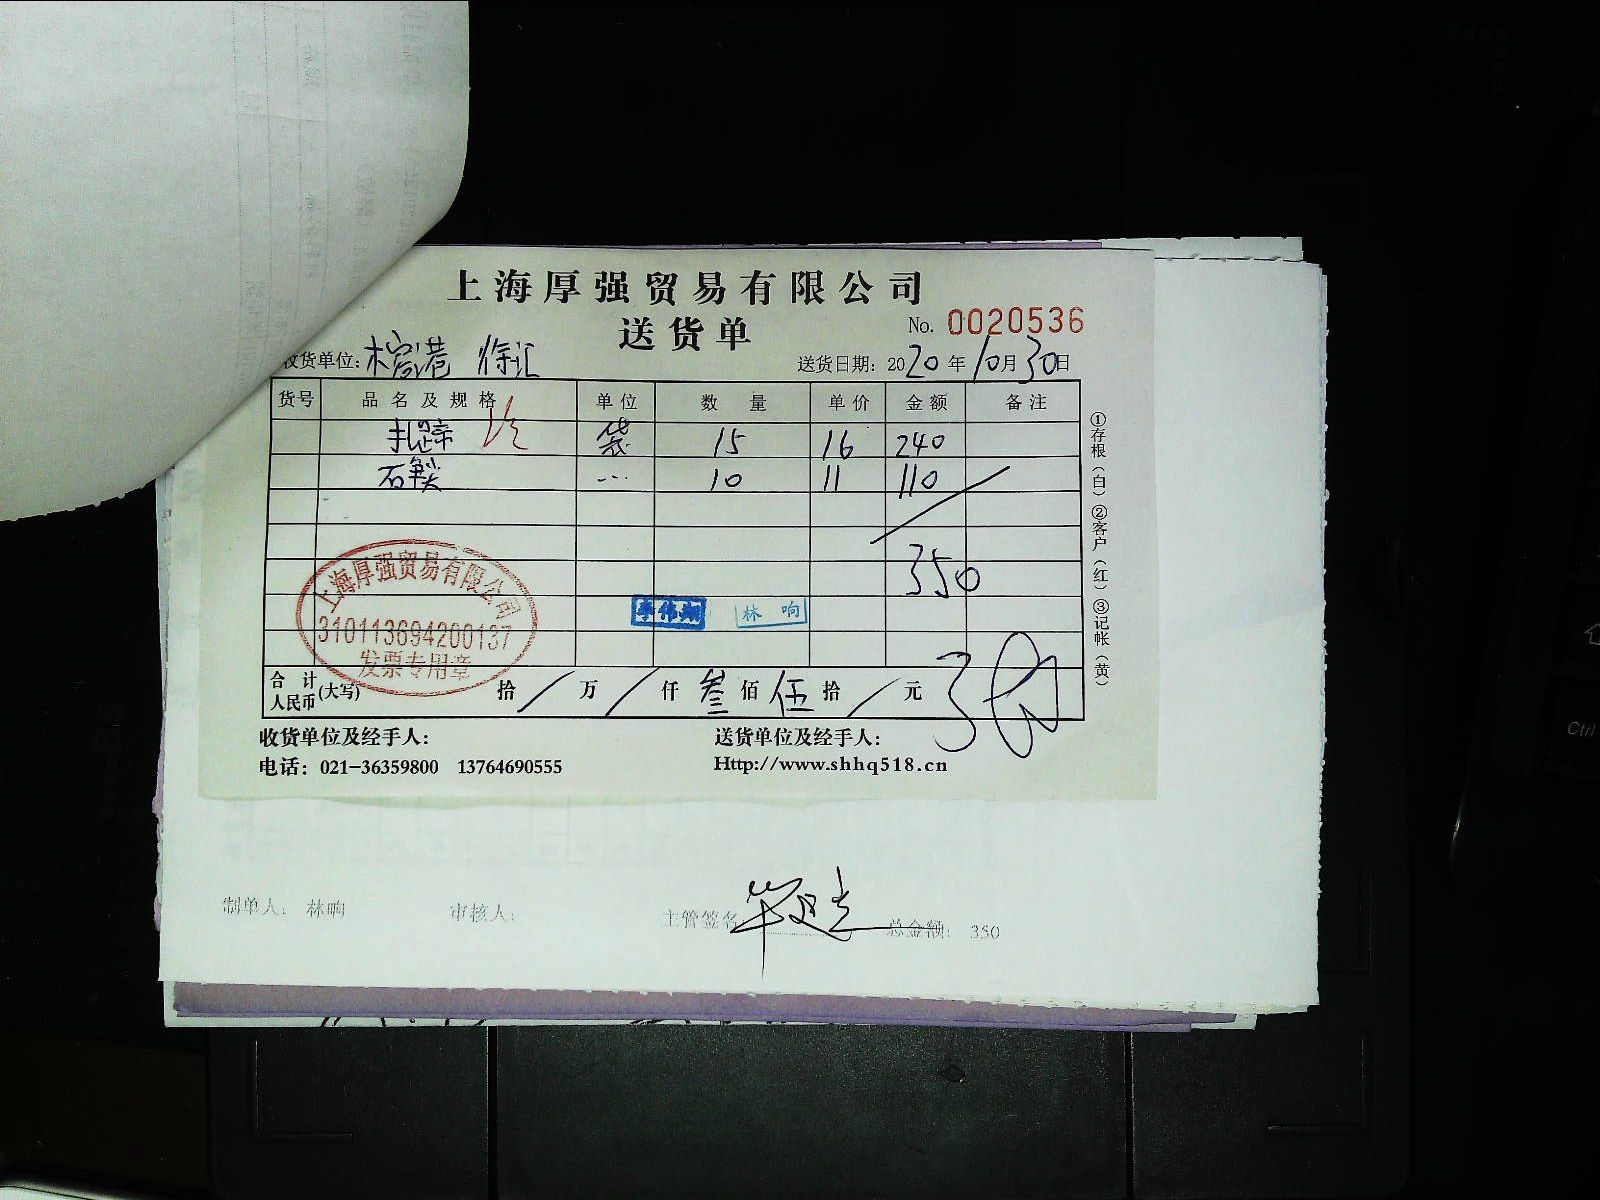 上海厚强贸易有限公司
送货单
No. 0020536
收货单位: 徐汇 送货日期: 2020年10月30日
货号 品名及规格 单位 数量 单价 金额 备注
袋 15 16 240
石 10 11 110
350
上海厚强贸易有限公司
310113694200137
发票专用章
李伟翔 林响
合计人民币(大写) 拾/万/仟叁佰伍拾/元
①存根(白)②客户(红)③记帐(黄)
收货单位及经手人: 送货单位及经手人:
电话: 021-36359800 13764690555 Http://www.shhq518.cn
制单人: 林响 审核人: 主管签名: 总金额: 350
Ctrl